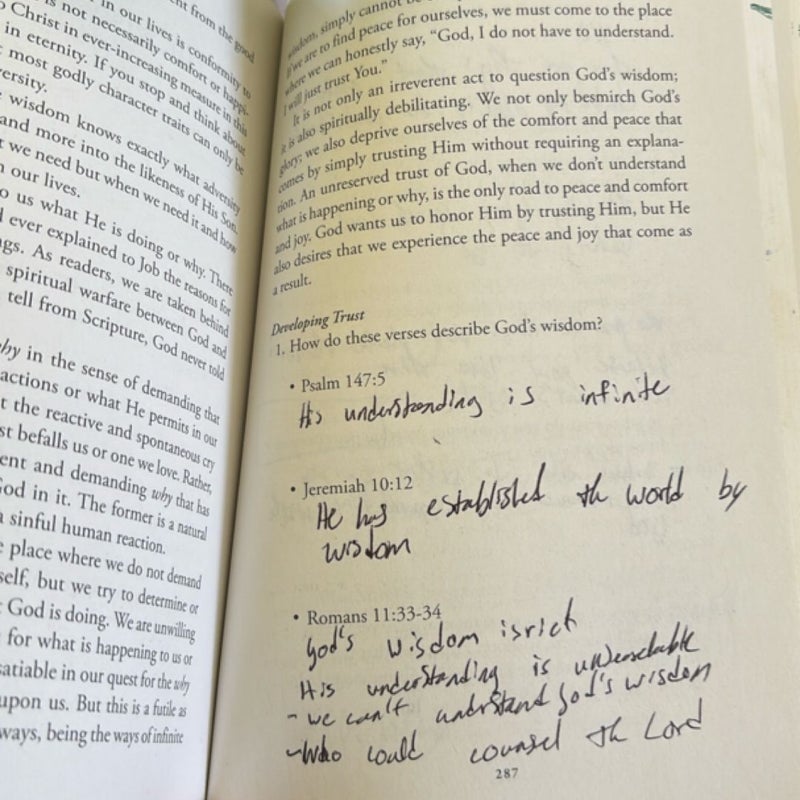 ent from the good
in our lives is conformity to
is not necessarily comfort or happi-
Christ in ever-increasing measure in this
in eternity. If you stop and think about
most godly character traits can only be
versity.
wisdom knows exactly what adversity
and more into the likeness of His Son.
t we need but when we need it and how
n our lives.
o us what He is doing or why. There
d ever explained to Job the reasons for
ngs. As readers, we are taken behind
spiritual warfare between God and
tell from Scripture, God never told
hy in the sense of demanding that
actions or what He permits in our
t the reactive and spontaneous cry
st befalls us or one we love. Rather,
ent and demanding why that has
God in it. The former is a natural
a sinful human reaction.
e place where we do not demand
self, but we try to determine or
t God is doing. We are unwilling
for what is happening to us or
satiable in our quest for the why
upon us. But this is a futile as
ways, being the ways of infinite
wisdom, simply cannot
If we are to find peace for ourselves, we must come to the place
where we can honestly say, “God, I do not have to understand.
I will just trust You.”
It is not only an irreverent act to question God’s wisdom;
it is also spiritually debilitating. We not only besmirch God’s
glory; we also deprive ourselves of the comfort and peace that
comes by simply trusting Him without requiring an explana-
tion. An unreserved trust of God, when we don’t understand
what is happening or why, is the only road to peace and comfort
and joy. God wants us to honor Him by trusting Him, but He
also desires that we experience the peace and joy that come as
a result.
Developing Trust
1. How do these verses describe God’s wisdom?
• Psalm 147:5
His understanding is infinite
• Jeremiah 10:12
He has established the world by
wisdom
• Romans 11:33-34
God's wisdom is rich
His understanding is unsearchable
- we can't understand God's wisdom
- Who could counsel the Lord
287